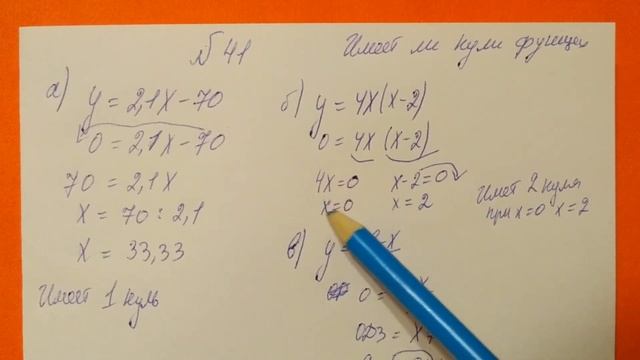 № 41
Имеет ли нули функция
а) y = 2,1x - 70
0 = 2,1x - 70
70 = 2,1x
x = 70 : 2,1
x = 33,33
Имеет 1 нуль
б) y = 4x(x-2)
0 = 4x(x-2)
4x=0 x-2=0
x=0 x=2
Имеет 2 нуля
при x=0 x=2
в) y =
0 =
ОДЗ = x